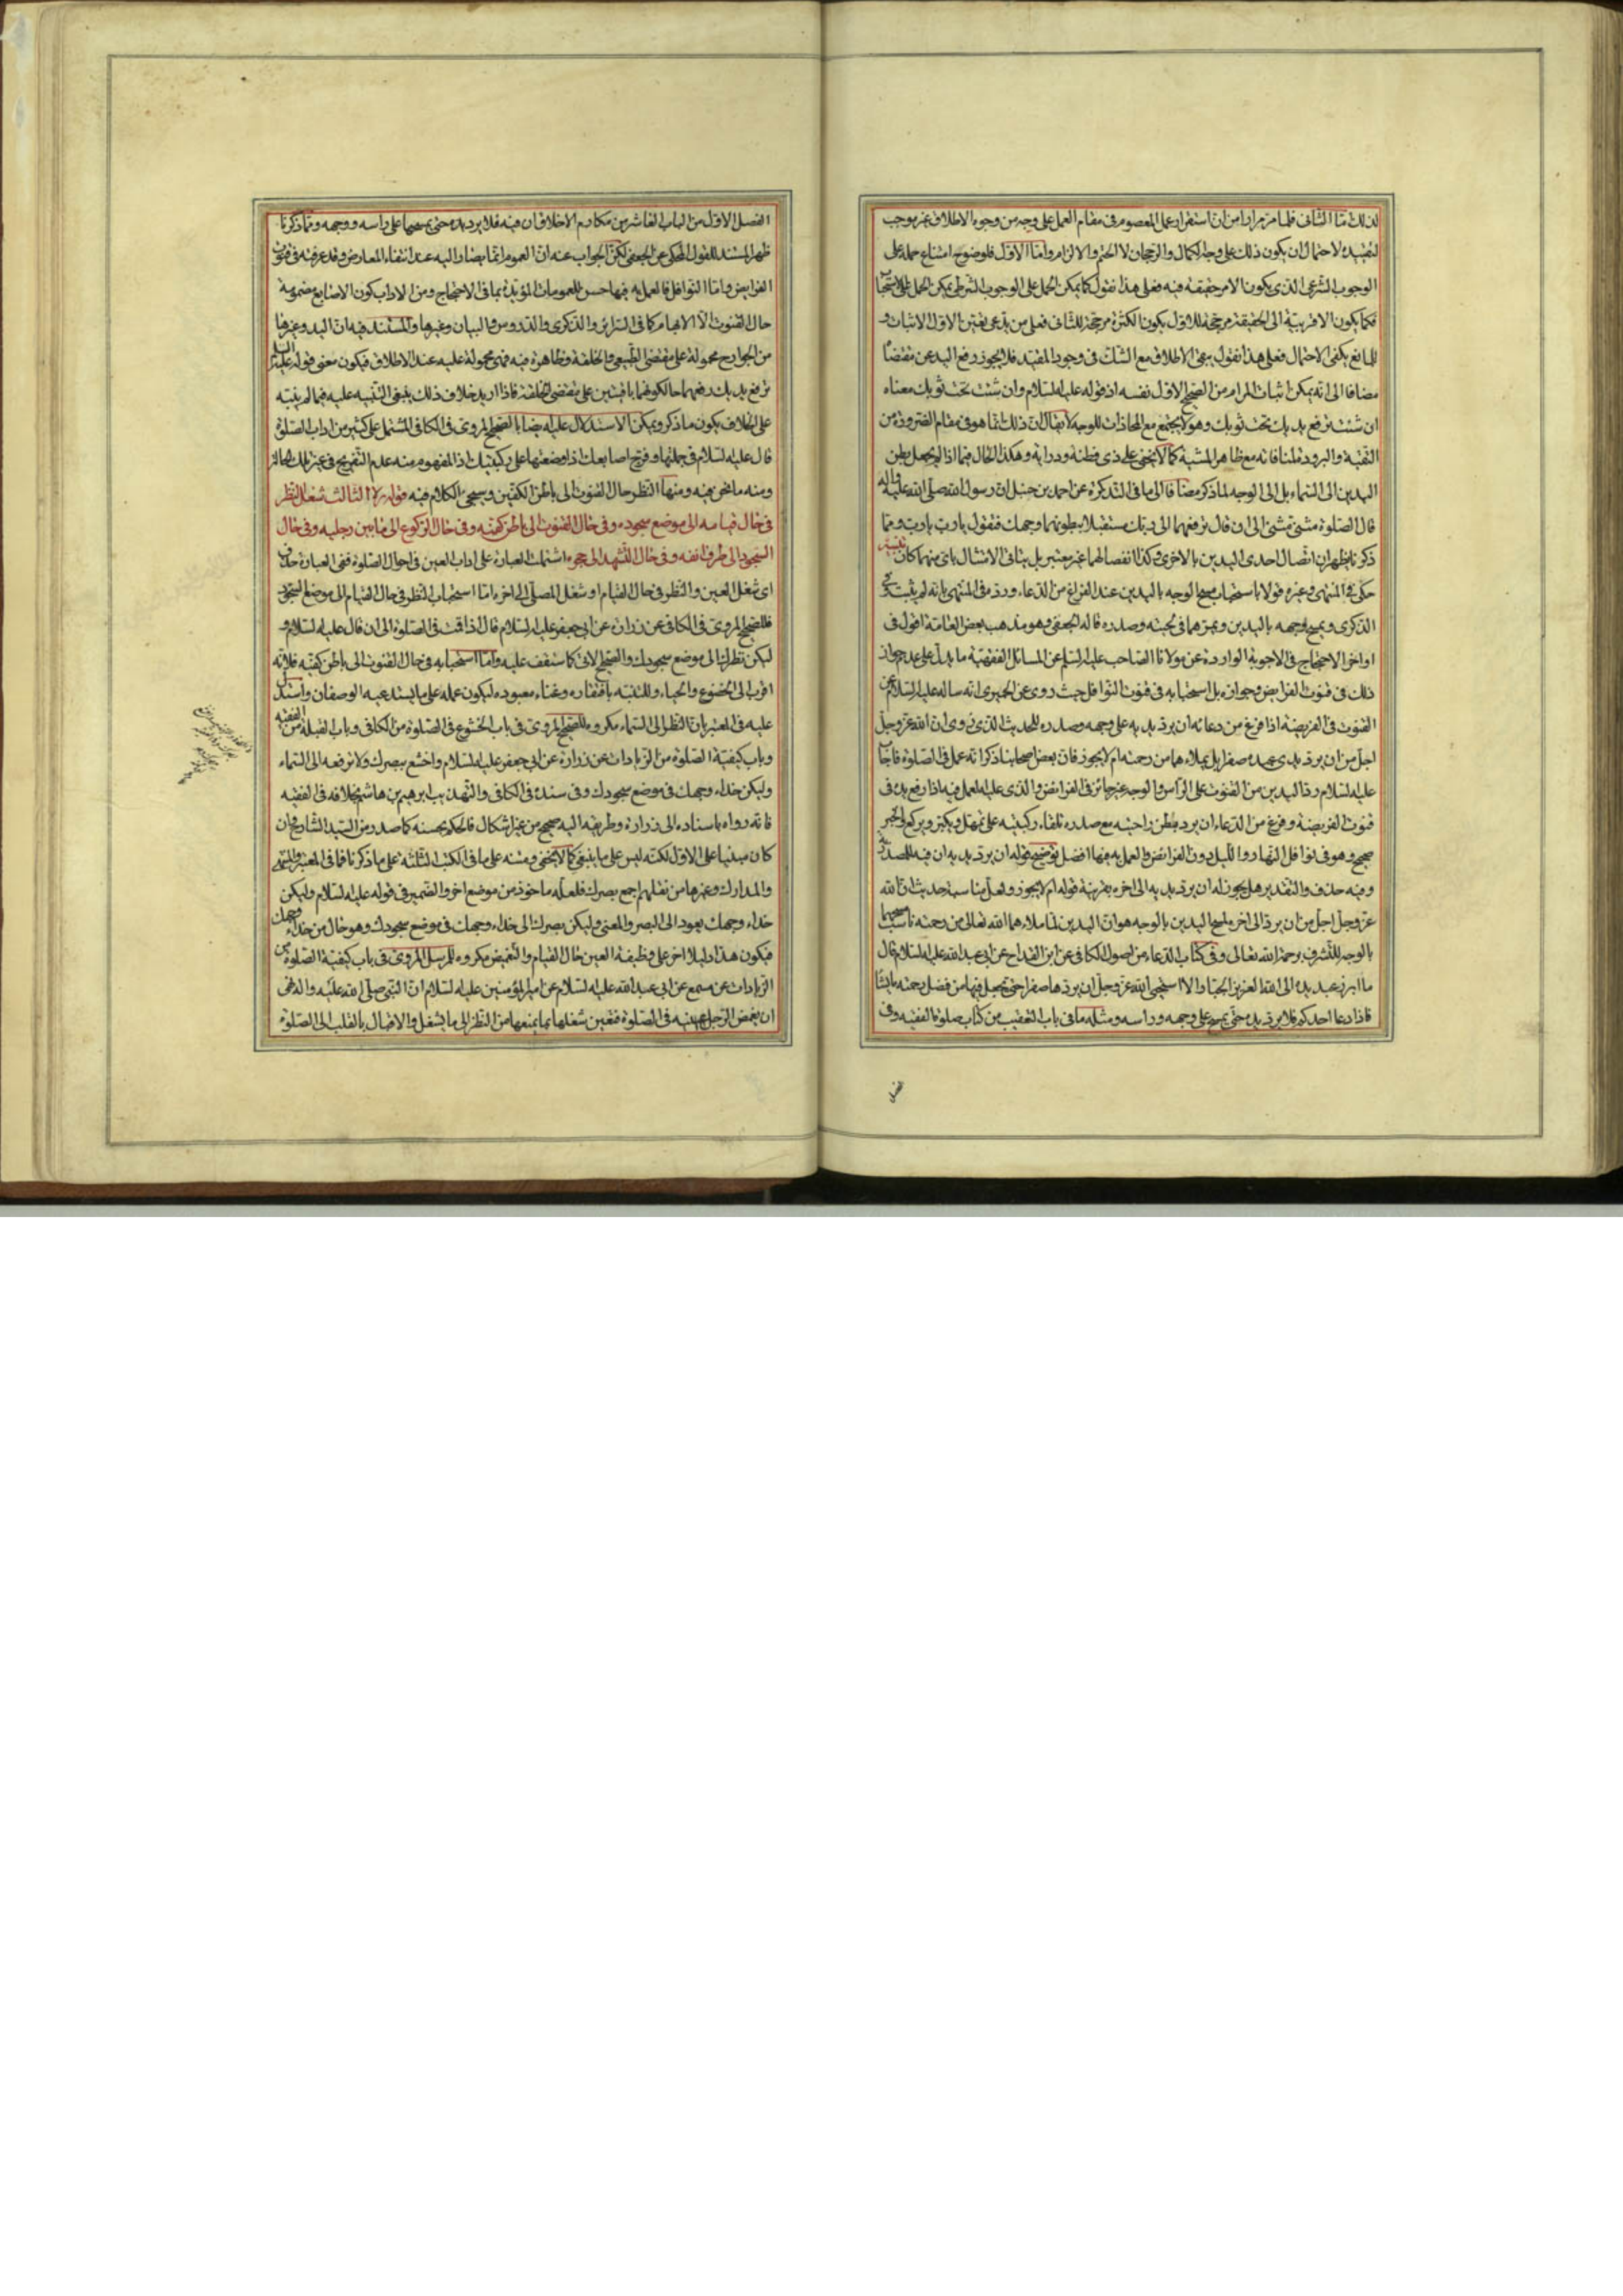 لذلك امّا الثانى فلما مر مرارا من ان استمرار عمل المعصوم فى مقام العمل على وجه من وجوه الاطلاق غير موجب
لتقييده لاحتمال ان يكون ذلك على وجه الكمال والرجحان لا الحتم والالزام وامّا الاوّل فلوضوح امتناع حمله على
الوجوب الشرعى الذى يكون الامر حقيقة فيه فعلى هذا نقول كما يمكن الحمل على الوجوب الشرطى يمكن الحمل على الاستحباب
فكما يكون الاقربية الى الحقيقة مرجّحة للاوّل يكون الكثرة مرجّحة للثانى فعلى من يدّعى تعيّن الاوّل الاثبات و
للمانع يكفى الاحتمال فعلى هذا نقول يبقى الاطلاق مع الشك فى وجود المقيّد فلا يجوز رفع اليد عن مقتضاه
مضافا الى انّه يمكن اثبات المرام من الصحيح الاول نفسه اذ قوله عليه السلام وان شئت تحت ثوبك معناه
ان شئت ترفع يديك تحت ثوبك وهو لا يجتمع مع المحاذات للوجه لا يقال ان ذلك انّما هو فى مقام الضرورة من
التقيّة والبرودة لمنافاته مع ظاهر المشية كما لا يخفى على ذى فطنة ودراية وهكذا الحال فيما اذا لم يجعل بطن
اليدين الى السماء بل الى الوجه لما ذكر مضافا الى ما فى التذكرة عن احمد بن حنبل ان رسول الله صلّى الله عليه واله
قال الصلوة مثنى مثنى الى ان قال ترفعهما الى ربّك مستقبلا ببطونهما وجهك فتقول يا ربّ يا ربّ وممّا
ذكرنا يظهر ان اتصال احدى اليدين بالاخرى وكذا انفصالهما غير معتبر بل يتاتى الامتثال باىّ منهما كان
حكى فى المنتهى وغيره قولا باستحباب مسح الوجه باليدين عند الفراغ من الدعاء وردّه فى المنتهى بانّه لم يثبت وفى
الذكرى ويمسح وجهه باليدين ويمرّهما فى لحيته وصدره قاله الجعفى وهو مذهب بعض العامّة اقول فى
اواخر الاحتجاج فى الاجوبة الواردة عن مولانا الصاحب عليه السلم عن المسائل الفقهيّة ما يدلّ على عدم جواز
ذلك فى قنوت الفرايض وجوازه بل استحبابه فى قنوت النوافل حيث روى عن الحميرى انّه ساله عليه السلام عن
القنوت فى الفريضة اذا فرغ من دعائه ان يردّ يديه على وجهه وصدره للحديث الذى روى ان الله عزّ وجلّ
اجلّ من ان يردّ يدى عبده صفرا بل يملاءهما من رحمته ام لا يجوز فان بعض اصحابنا ذكر انّه عمل فى الصلوة فاجاب
عليه السلام ردّ اليدين من القنوت على الرأس والوجه غير جائز فى الفرائض والذى عليه العمل فيه اذا رفع يده فى
قنوت الفريضة وفرغ من الدعاء ان يردّ بطن راحتيه مع صدره تلقاء ركبتيه على تمهّل ويكبّر ويركع والخبر
صحيح وهو فى نوافل النهار والليل دون الفرائض والعمل به فيها افضل توضيح قوله ان يردّ يديه ان فيه للصدر
وفيه حذف والتقدير هل يجوز له ان يردّ يديه الى اخره بقرينة قوله ام لا يجوز ولعلّ مناسبة حديث ان الله
عزّ وجل اجلّ من ان يردّ الى اخره لمسح اليدين بالوجه هو ان اليدين لمّا ملاءهما الله تعالى من رحمته ناسب مسحهما
بالوجه للتّشرف برحمة الله تعالى وفى كتاب الدعاء من اصول الكافى عن ابن القداح عن ابى عبد الله عليه السلام قال
ما ابرز عبد يده الى الله العزيز الجبّار الا استحيى الله عزّ وجلّ ان يردّها صفرا حتّى يجعل فيها من فضل رحمته ما يشاء
فاذا دعا احدكم فلا يردّ يده حتّى يمسح على وجهه وراسه ومثله ما فى باب التعقيب من كتاب صلوة الفقيه وفى
الفصل الاوّل من الباب العاشر من مكارم الاخلاق ان فيه فلا يرد يده حتى يمسح بها على راسه ووجهه وممّا ذكرنا
ظهر المستند للقول المحكى عن الجعفى لكنّ الجواب عنه انّ العموم انّما يصار اليه عند انتفاء المعارض وقد عرفته فى قنوت
الفرايض وامّا النوافل فالعمل به فيها حسن للعمومات المؤيّدة بما فى الاحتجاج ومن الاداب كون الاصابع مضمومة
حال القنوت الّا الابهام كما فى السرائر والذكرى والدروس والبيان وغيرها والمستند فيه انّ اليد وغيرها
من الجوارح محمولة على مقتضى الطبيعى والخلقة وظاهرة فيه فهى محمولة عليه عند الاطلاق فيكون معنى قوله عليه السلام
ترفع يديك رفعهما حالكونهما باقيتين على مقتضى الخلقة فاذا اريد خلاف ذلك ينبغى التنبيه عليه فيما لم ينبّه
على الخلاف يكون ما ذكر ويمكن الاستدلال عليه ايضا بالصحيح المروىّ فى الكافى المشتمل على كثير من اداب الصلوة
قال عليه السلام فى جملتها وفرّج اصابعك اذا وضعتها على ركبتيك اذ المفهوم منه عدم التفريج فى غير تلك الحالة
ومنه ما نحن فيه ومنها النظر حال القنوت الى باطن الكفّين وسيجئ الكلام فيه قوله ره الثالث شغل النظر
فى حال قيامه الى موضع سجوده وفى حال القنوت الى باطن كفّيه وفى حال الركوع الى ما بين رجليه وفى حال
السجود الى طرف انفه وفى حال التشهد الى حجره اشتملت العبارة على اداب العين فى احوال الصلوة ففى العبارة حذف
اى شغل العين والنظر فى حال القيام او شغل المصلّى الى اخره امّا استحباب النظر فى حال القيام الى موضع السجود
فللصحيح المروىّ فى الكافى عن زرارة عن ابى جعفر عليه السلام قال اذا قمت فى الصلوة الى ان قال عليه السلام و
ليكن نظرك الى موضع سجودك والصحيح الاتى كما ستقف عليه وامّا استحبابه فى حال القنوت الى باطن كفّيه فلانّه
اقرب الى الخضوع والحياء وللتنبّه بافتقاره وغناء معبوده ليكون عمله على ما يستدعيه الوصفان واستدلّ
عليه فى المعتبر بانّ النظر الى السماء مكروه للصحيح المروىّ فى باب الخشوع فى الصلوة من الكافى وباب القبلة من الفقيه
وباب كيفيّة الصلوة من الزيادات عن زرارة عن ابى جعفر عليه السلام واخشع ببصرك ولا ترفعه الى السماء
وليكن حذاء وجهك فى موضع سجودك وفى سنده فى الكافى والتهذيب ابرهيم بن هاشم بخلافه فى الفقيه
فانّه رواه باسناده الى زرارة وطريقه اليه صحيح من غير اشكال فالحكم بحسنه كما صدر من السيّد الشارح وان
كان مبنيا على الاوّل لكنّه ليس على ما ينبغى كما لا يخفى ومتنه على ما فى الكتب الثلثة على ما ذكرنا فما فى المعتبر والمنتهى
والمدارك وغيرها من نقلهم اجمع بصرك فلعلّه ماخوذ من موضع اخر والضمير فى قوله عليه السلام وليكن
حذاء وجهك يعود الى البصر والمعنى وليكن بصرك الى حذاء وجهك فى موضع سجودك وهو حال من حذاء وجهك
فيكون هذا دليلا اخر على وظيفة العين حال القيام والتغميض مكروه للمرسل المروىّ فى باب كيفيّة الصلوة من
الزيادات عن مسمع عن ابى عبد الله عليه السلام عن امير المؤمنين عليه السلام انّ النبى صلّى الله عليه واله نهى
ان يغمض الرّجل عينيه فى الصلوة فتعيّن شغلها بما يمنعها من النظر الى ما يشغل والاقبال بالقلب الى الصلوة